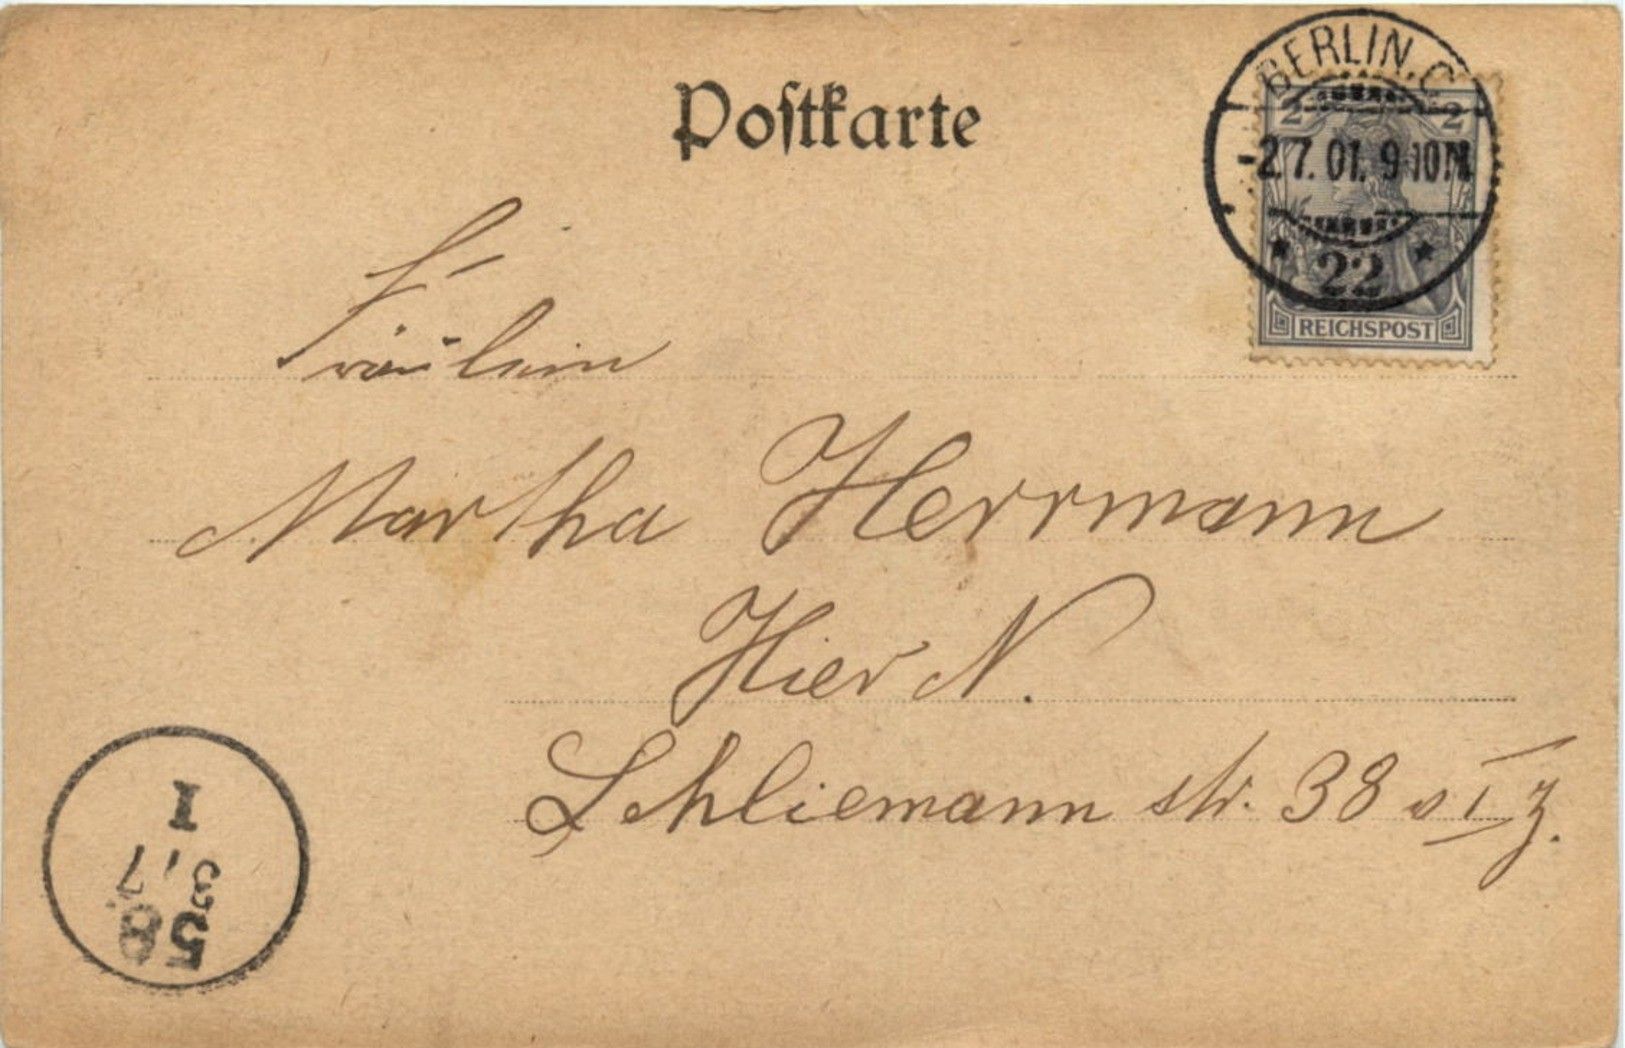 Postkarte
BERLIN. C.
2 2
-2.7.01. 9-10N.
* 22 *
REICHSPOST
Fräulein
Martha Herrmann
Hier N.
Schliemann str. 38 v I
58
3/7
I